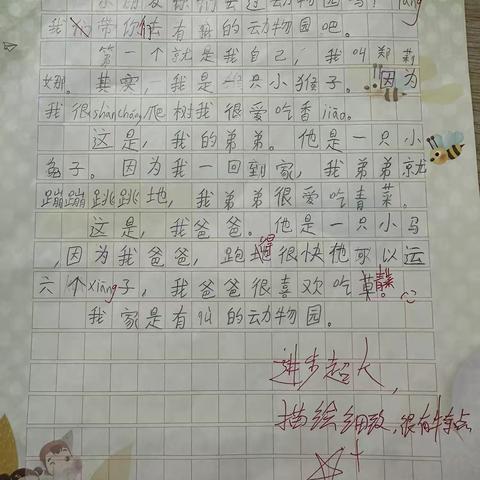 小朋友你们去过动物园吗？ràng
我带你去有趣的动物园吧。
第一个就是我自己，我叫郑莉
娜。其实，我是一只小猴子。因为
我很shàncháng爬树我很爱吃香jiāo。
这是，我的弟弟。他是一只小
兔子。因为我一回到家，我弟弟就
蹦蹦跳跳地，我弟弟很爱吃青菜。
这是，我爸爸。他是一只小马
，因为我爸爸，跑得很快他可以运
六个xiāng子，我爸爸很喜欢吃草青菜。
我家是有qù的动物园。
进步超大，
描绘细致，很有特点